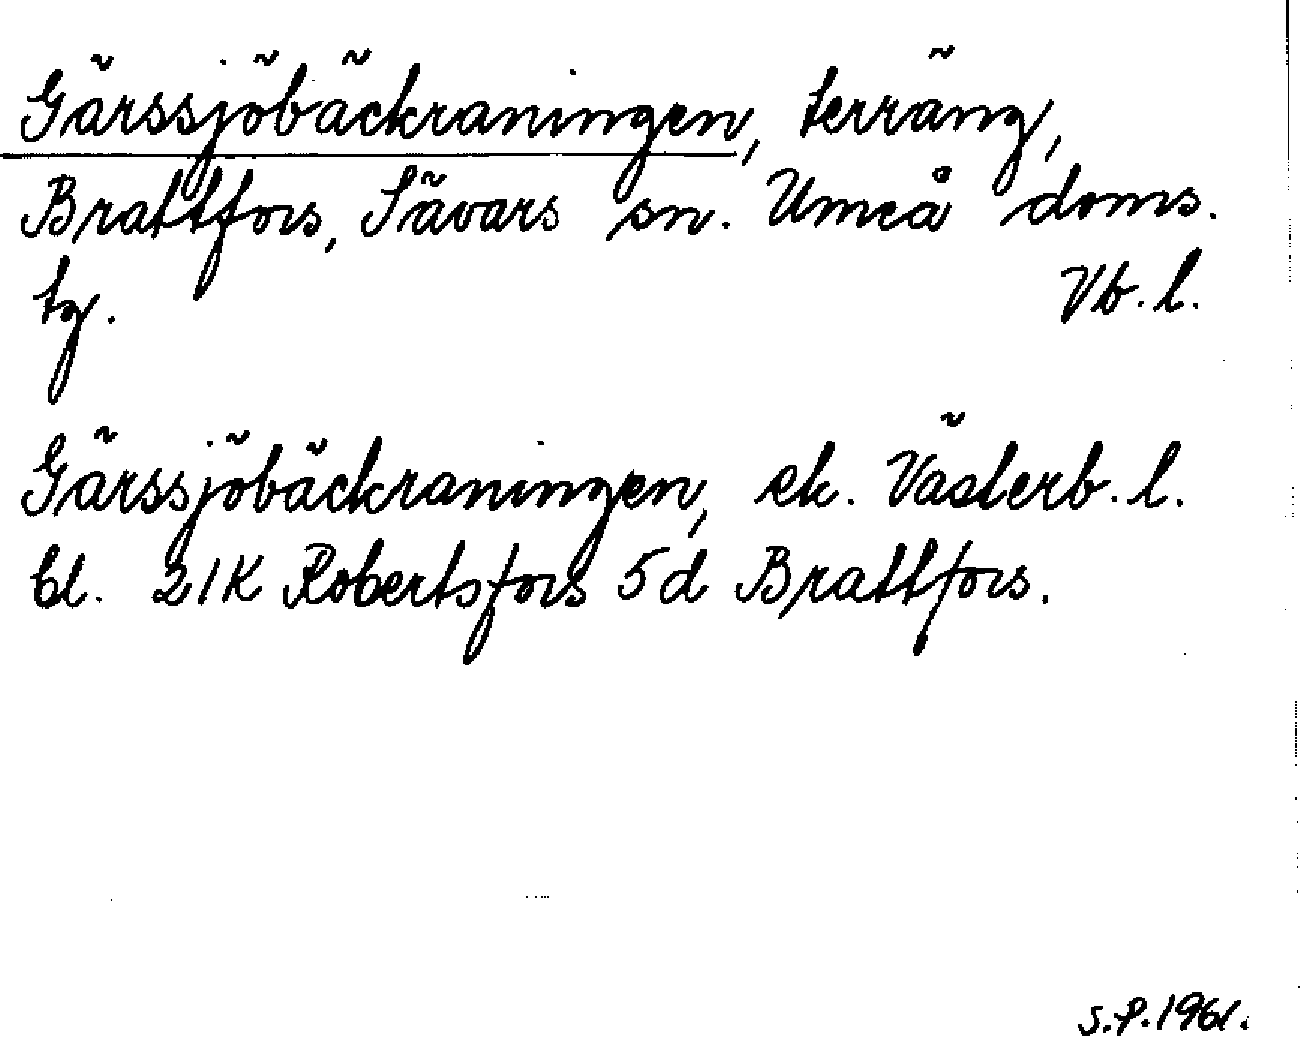 Gärssjöbäckraningen, terräng,
Brattfors, Sävars sn. Umeå doms.
tg. Vb. l.
Gärssjöbäckraningen, ek. Västerb. l.
bl. 21K Robertsfors 5d Brattfors.
S.P. 1961.